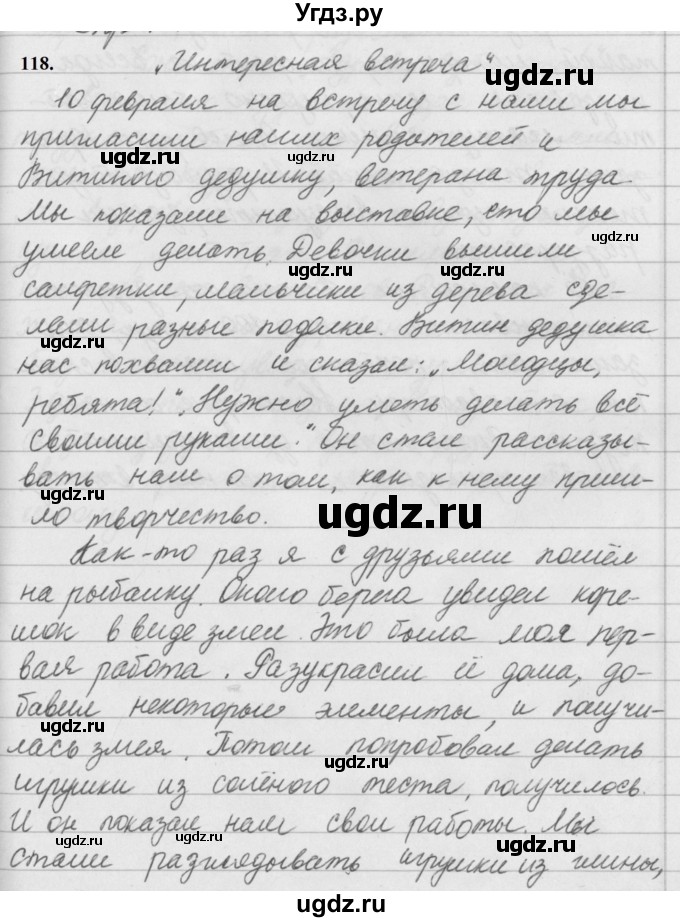 Угдз.ру
118. „Интересная встреча“
10 февраля на встречу с нами мы
пригласили наших родителей и
Витиного дедушку, ветерана труда.
Мы показали на выставке, что мы
умеем делать. Девочки вышили
салфетки, мальчики из дерева сде-
лали разные поделки. Витин дедушка
нас похвалил и сказал: „Молодцы,
ребята!“ „Нужно уметь делать всё
своими руками.“ Он стал рассказы-
вать нам о том, как к нему приш-
ло творчество.
Как-то раз я с друзьями пошёл
на рыбалку. Около берега увидел коре-
шок в виде змеи. Это была моя пер-
вая работа. Разукрасил её дома, до-
бавил некоторые элементы, и получи-
лась змея. Потом попробовал делать
игрушки из солёного теста, получилось.
И он показал нам свои работы. Мы
стали разглядывать игрушки из глины,
ugdz.ru
ugdz.ru
ugdz.ru
ugdz.ru
ugdz.ru
ugdz.ru
ugdz.ru
ugdz.ru
ugdz.ru
ugdz.ru
ugdz.ru
ugdz.ru
ugdz.ru